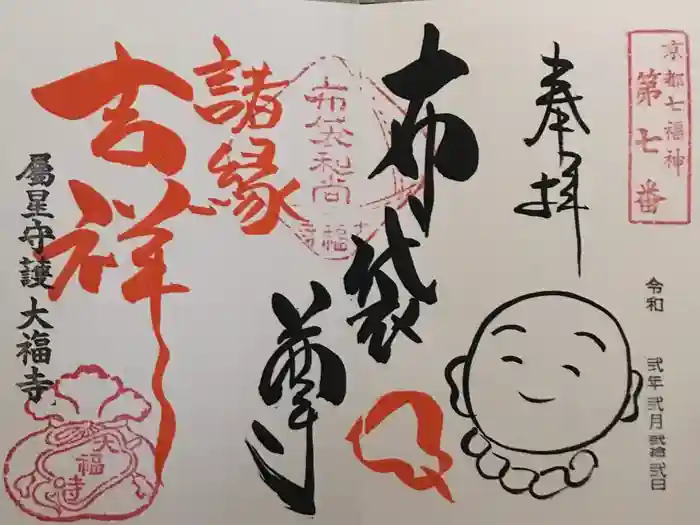 京都七福神
第七番
奉拝
令和 弐年 弐月 弐拾弐日
布袋尊
布袋和尚
大福寺
諸縁
吉祥
屬星守護 大福寺
大福寺